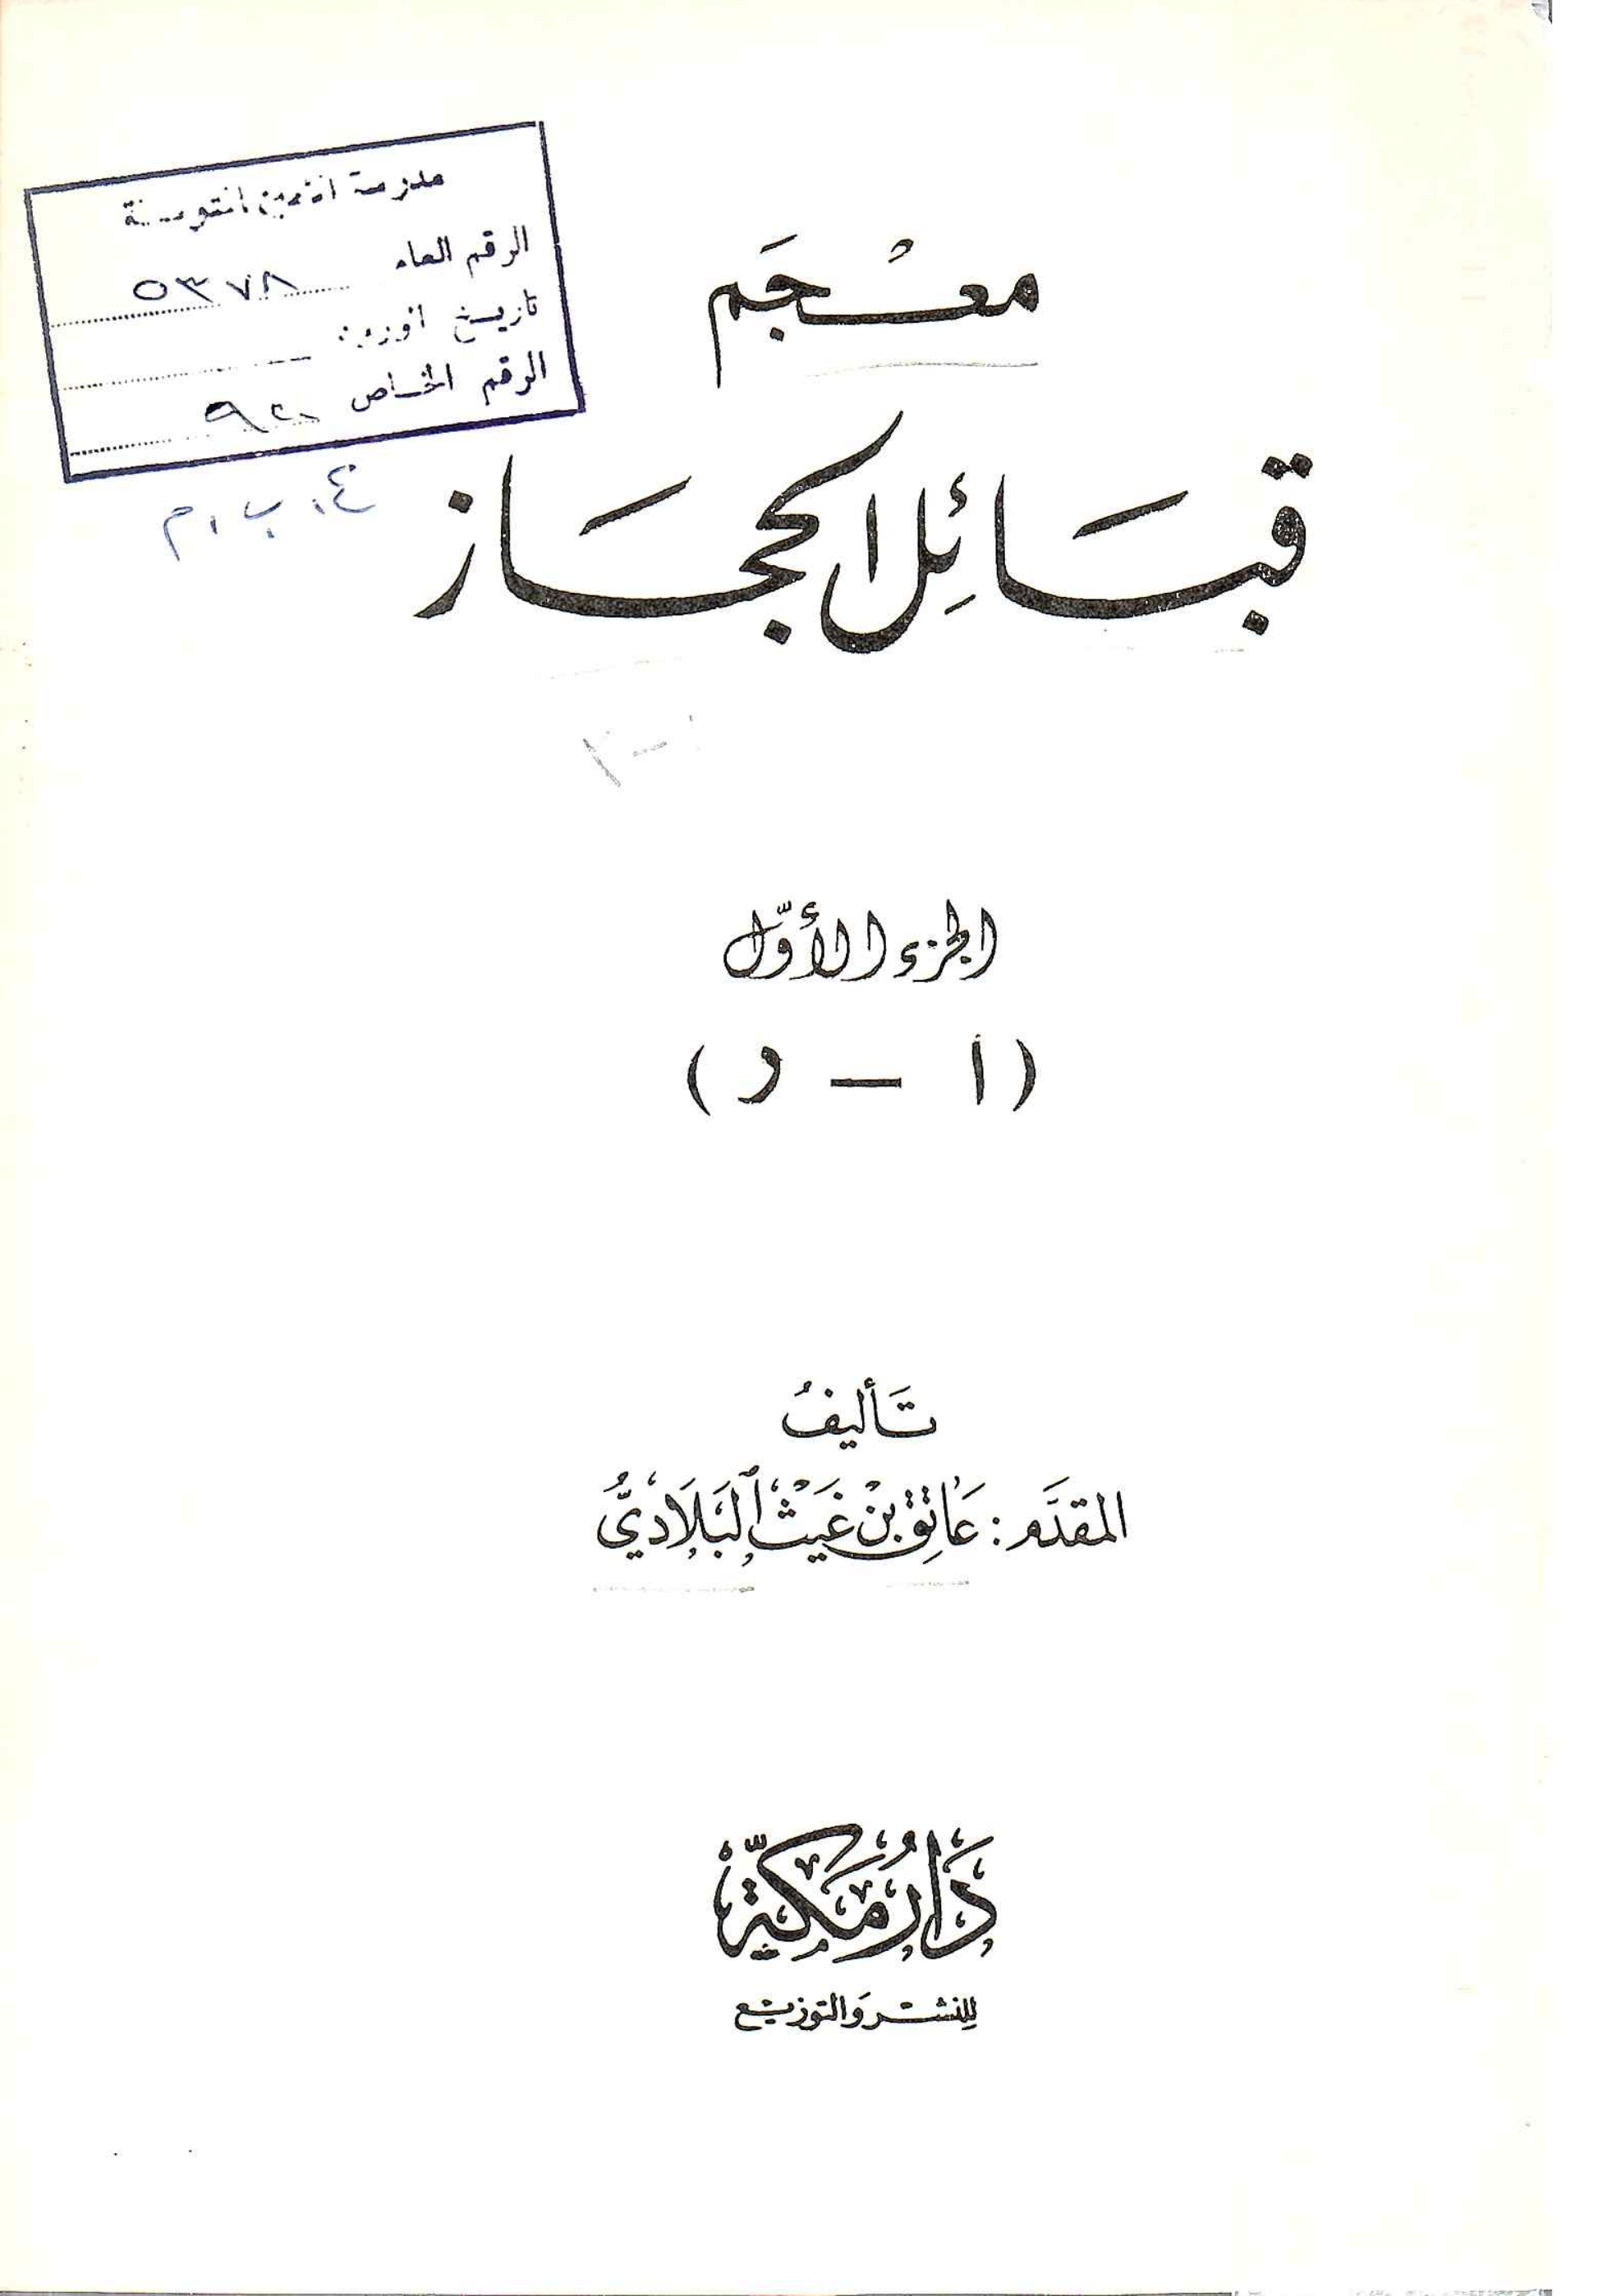 مدرسة
الرقم العام ٥٣٧٨
تاريخ
الرقم الخاص ٩٢٠
٤،ب،م
معْجَم
قبَائِل الحجَاز
الجزء الأوّل
(أ - د)
تَأليفُ
المقدَّم: عَاتِق بنْ غَيَثْ البَلَاديُّ
دَارُ مَكَّة
لِلنشْر وَالتوزيْع